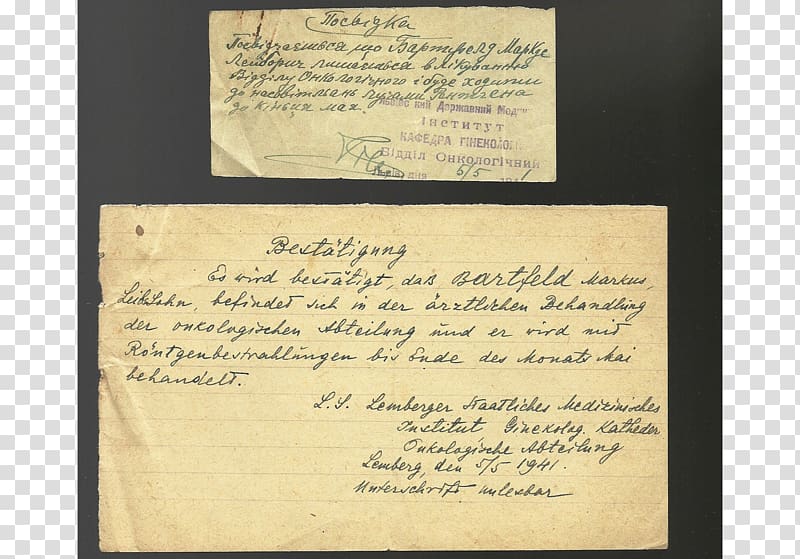 Посвідка
Посвідчається що Бартфелд Маркус
Лейбович лишається в лікуванню
Відділу Онкологічного і буде ходити
до насвітлань лучами Рентгена
до кінця мая.
Львівський Державний Мед
Інститут
КАФЕДРА ГІНЕКОЛОГ
Відділ Онкологічний
Львів, дня 5/5 1
Bestätigung
Es wird bestätigt, daß Bartfeld Markus,
Leib Sohn, befindet sich in der ärztlichen Behandlung
der onkologischen Abteilung und er wird mit
Röntgenbestrahlungen bis Ende des Monats Mai
behandelt.
L.S. Lemberger Staatliches Medizinisches
Institut Ginekolog. Katheder
Onkologische Abteilung
Lemberg, den 5/5 1941.
Unterschrift unlesbar